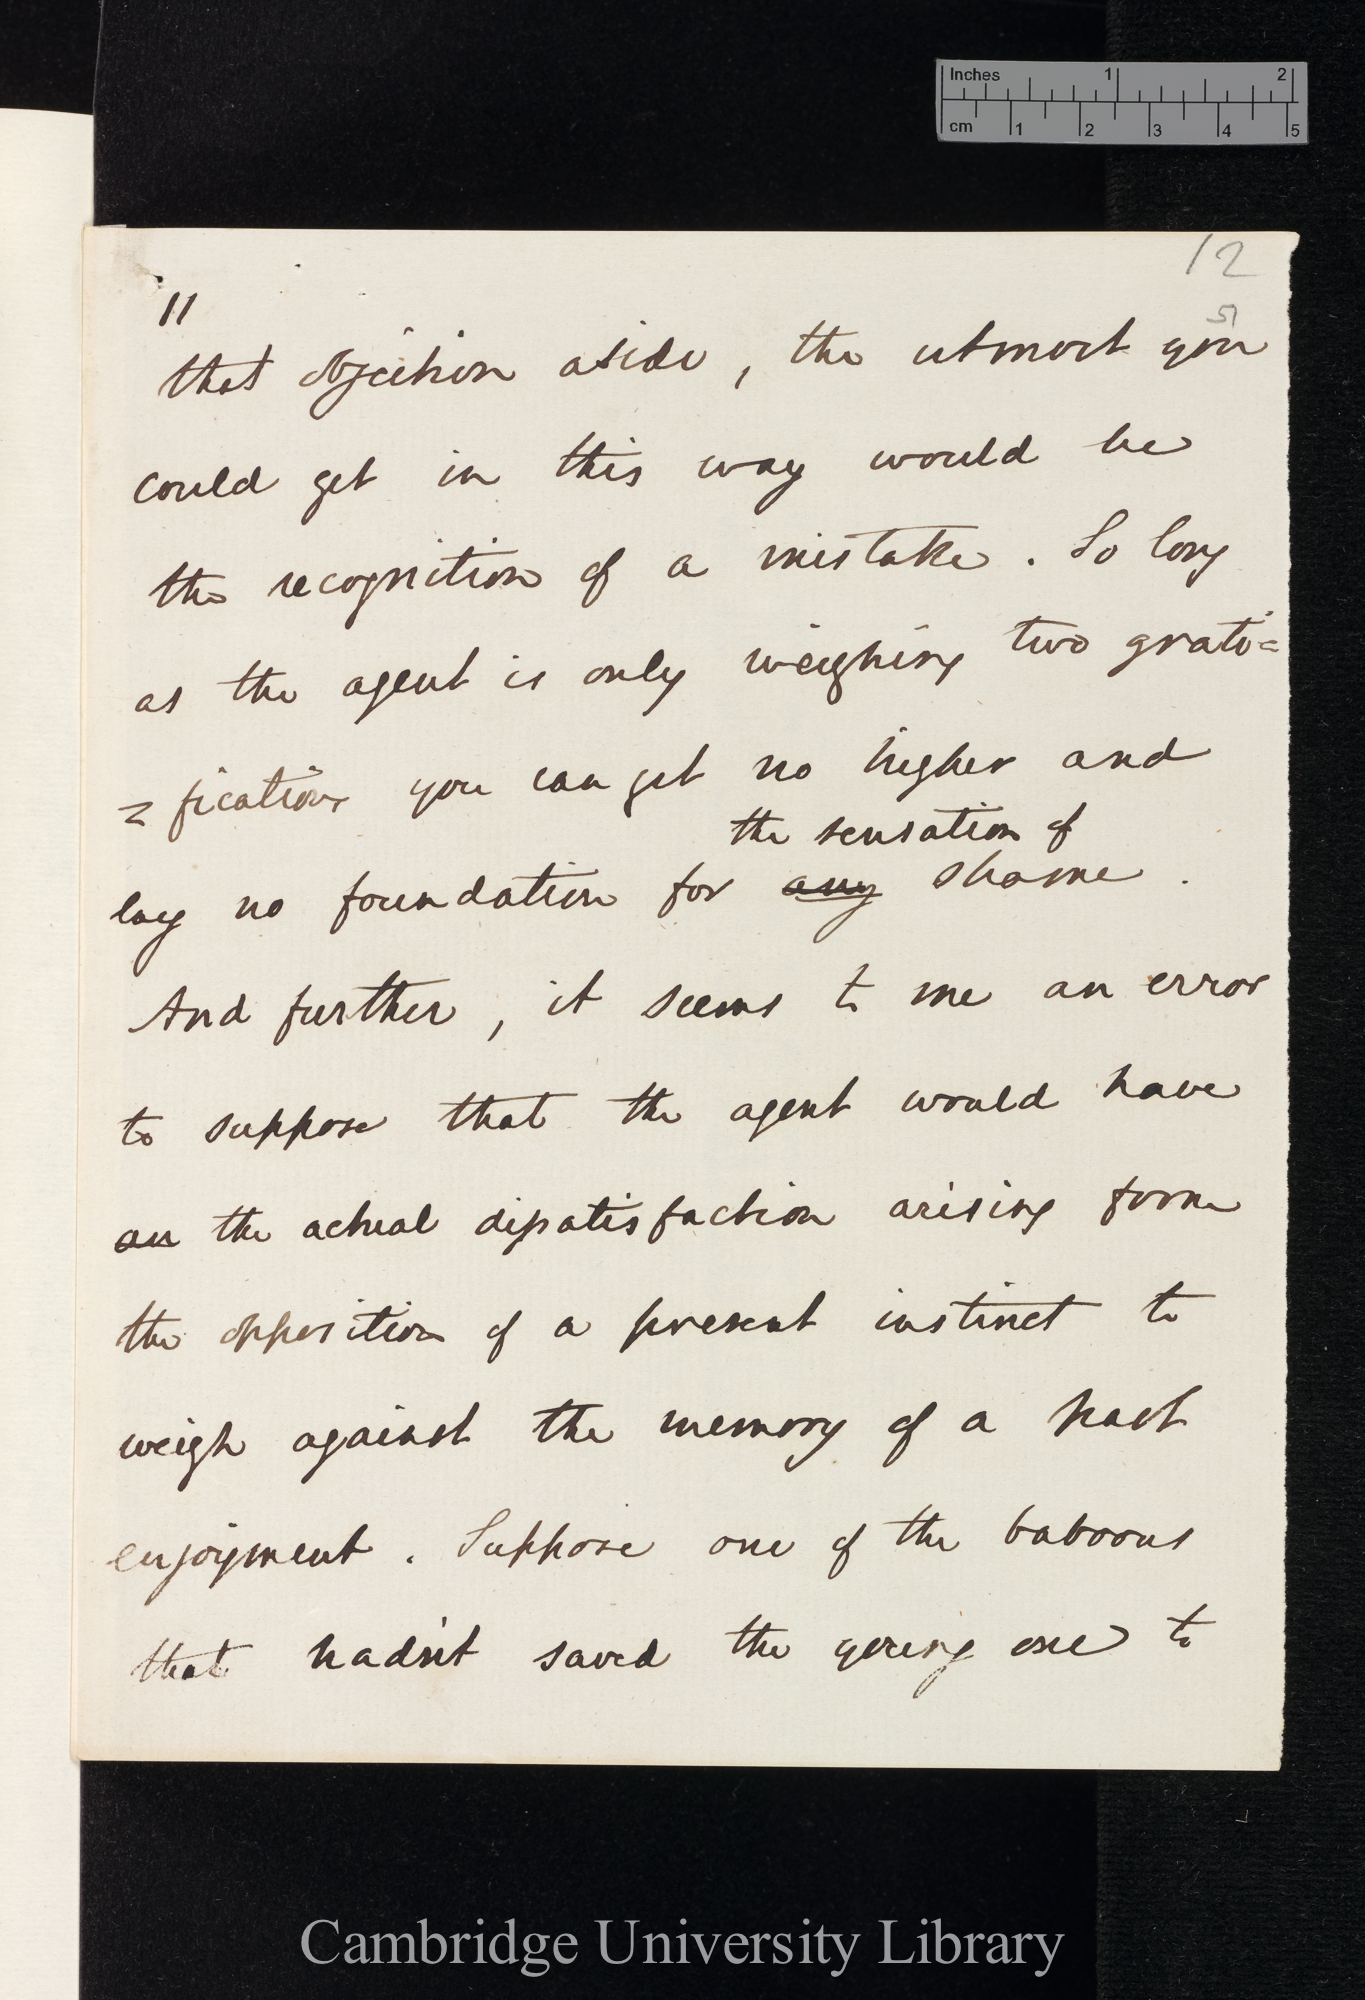 Inches 1 2
cm 1 2 3 4 5
12
51
11
that objection aside, the utmost you
could get in this way would be
the recognition of a mistake. So long
as the agent is only weighing two grati=
=fications you can get no higher and
the sensation of
lay no foundation for any shame.
And further, it seems to me an error
to suppose that the agent would have
an the actual dissatisfaction arising form
the opposition of a present instinct to
weigh against the memory of a past
enjoyment. Suppose one of the baboons
that hadn't saved the young one to
Cambridge University Library